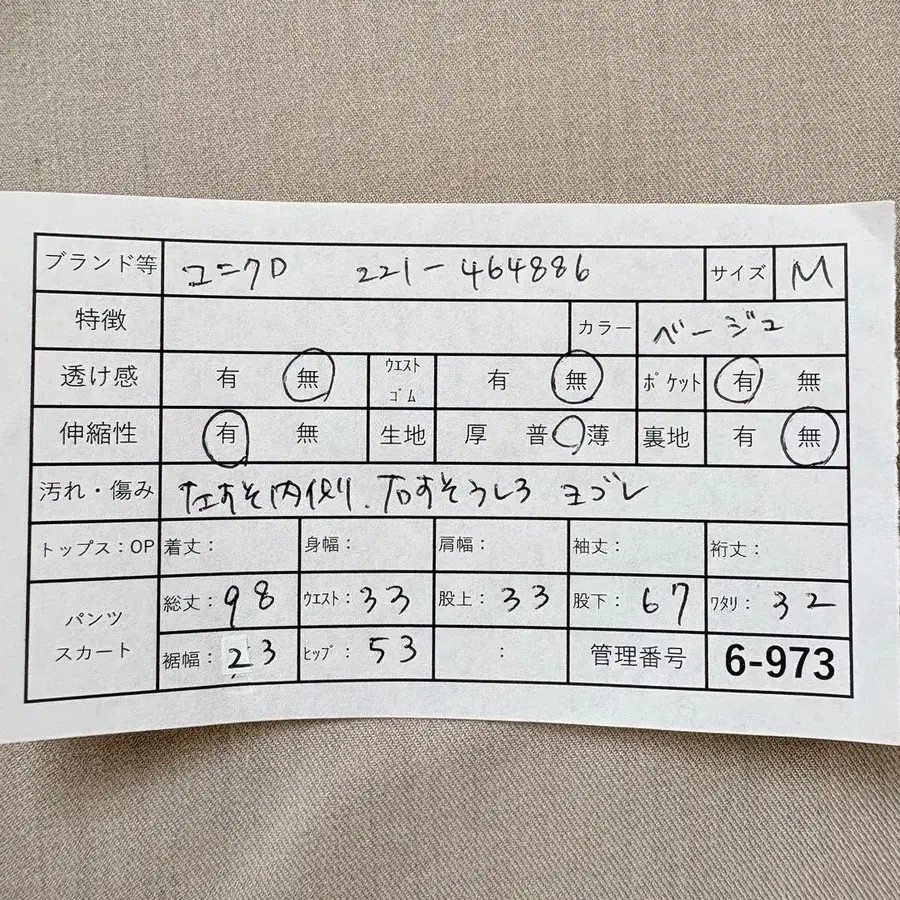 ブランド等 ユニクロ 221-464886 サイズ M
特徴 カラー ベージュ
透け感 有 無 ウエストゴム 有 無 ポケット 有 無
伸縮性 有 無 生地 厚 普 薄 裏地 有 無
汚れ・傷み 左すそ内側、右すそうしろ ヨゴレ
トップス:OP 着丈: 身幅: 肩幅: 袖丈: 裄丈:
パンツ スカート 総丈:98 ウエスト:33 股上:33 股下:67 ワタリ:32
裾幅:23 ヒップ:53 : 管理番号 6-973